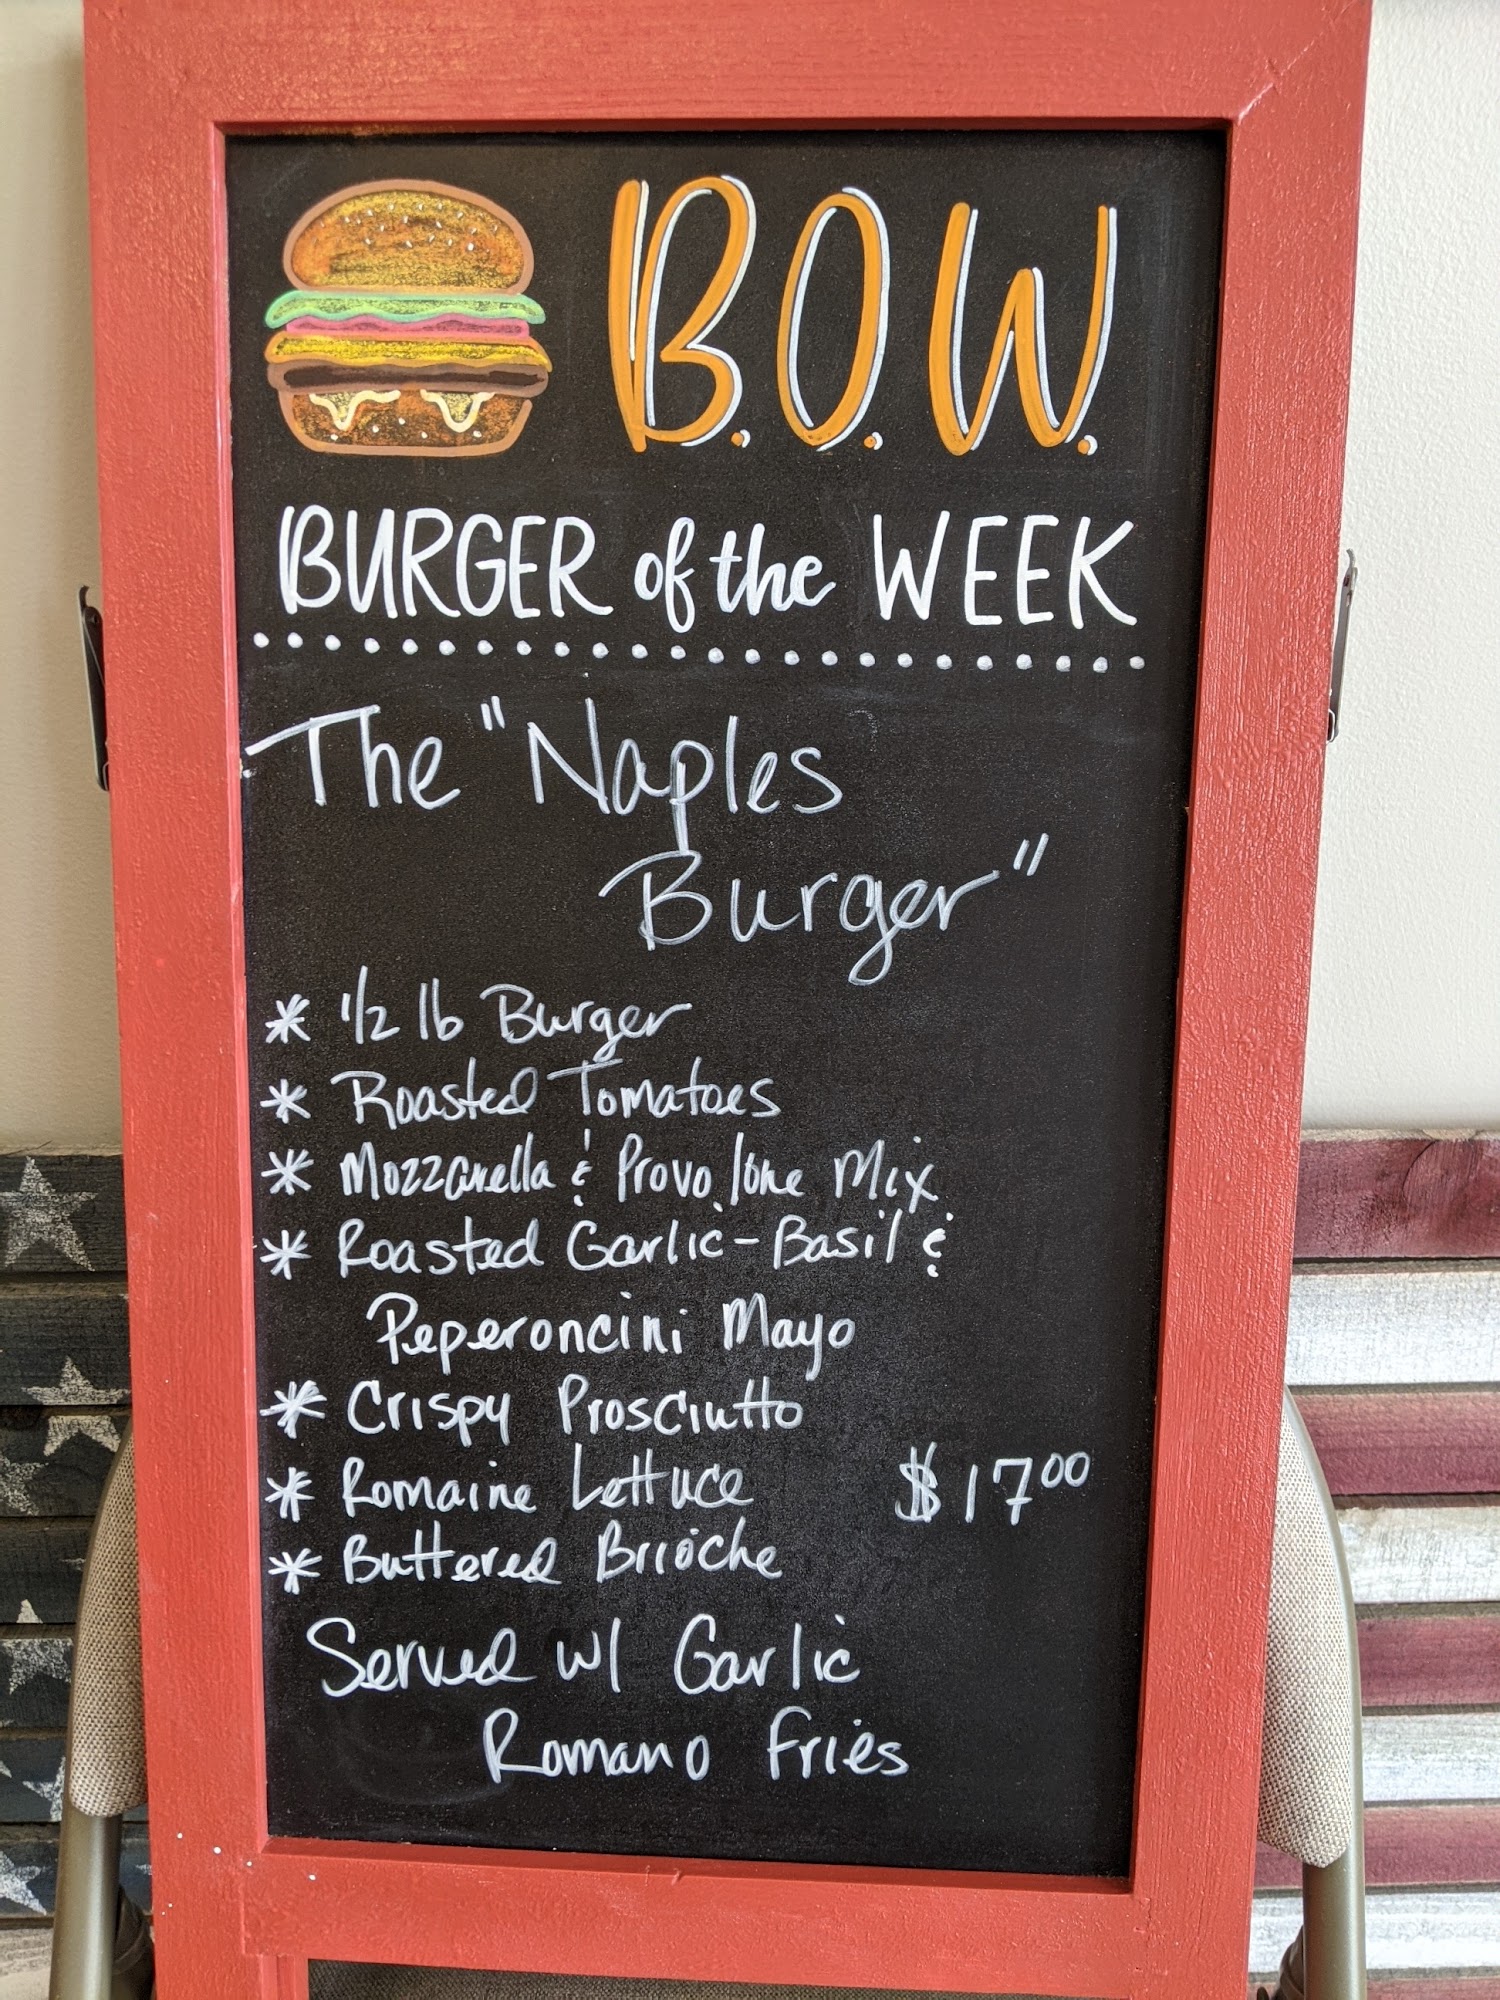 B.O.W.
BURGER of the WEEK
The "Naples
Burger"
* 1/2 lb Burger
* Roasted Tomatoes
* Mozzarella & Provolone Mix
* Roasted Garlic-Basil &
Peperoncini Mayo
* Crispy Prosciutto
* Romaine Lettuce $17.00
* Buttered Brioche
Served w/ Garlic
Romano Fries